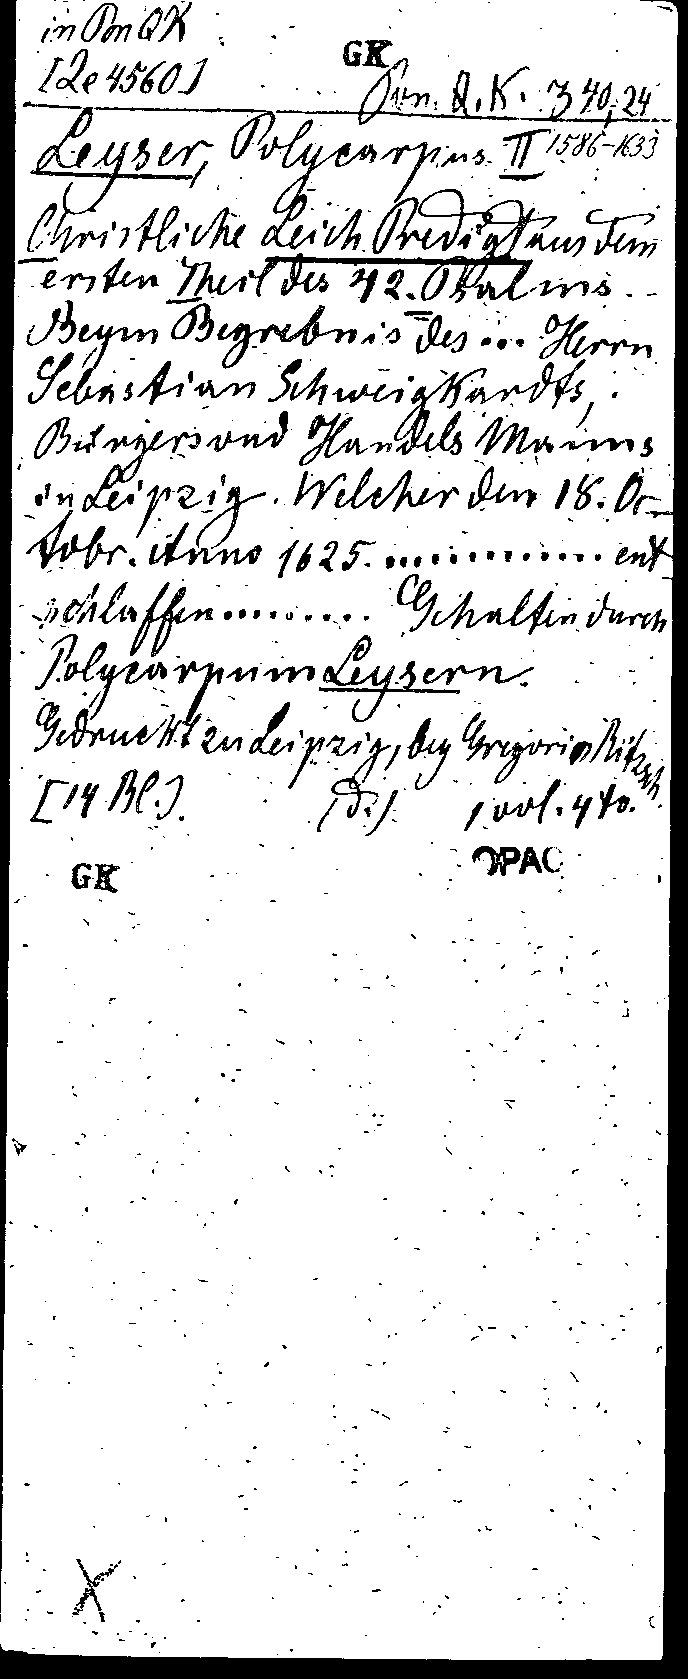 in Pon QK
GK
[Ze 4560]
Pon. Q. K. 340, 24
Leyser, Polycarpus II 1586-1633
Christliche Leich Predigt aus dem
ersten Theil des 42. Psalms.
Beym Begrebnis des... Herrn
Sebastian Schweigkardts,
Bürgers vnd Handels Manns
in Leipzig. Welcher den 18. Oc-
tobr. Anno 1625. ............. ent
schlaffen.......... Gehalten durch
Polycarpum Leysern.
Gedruckt zu Leipzig, bey Gregorio Ritzsch.
[14 Bl.]. 1 vol. 4to.
GK OPAC
X